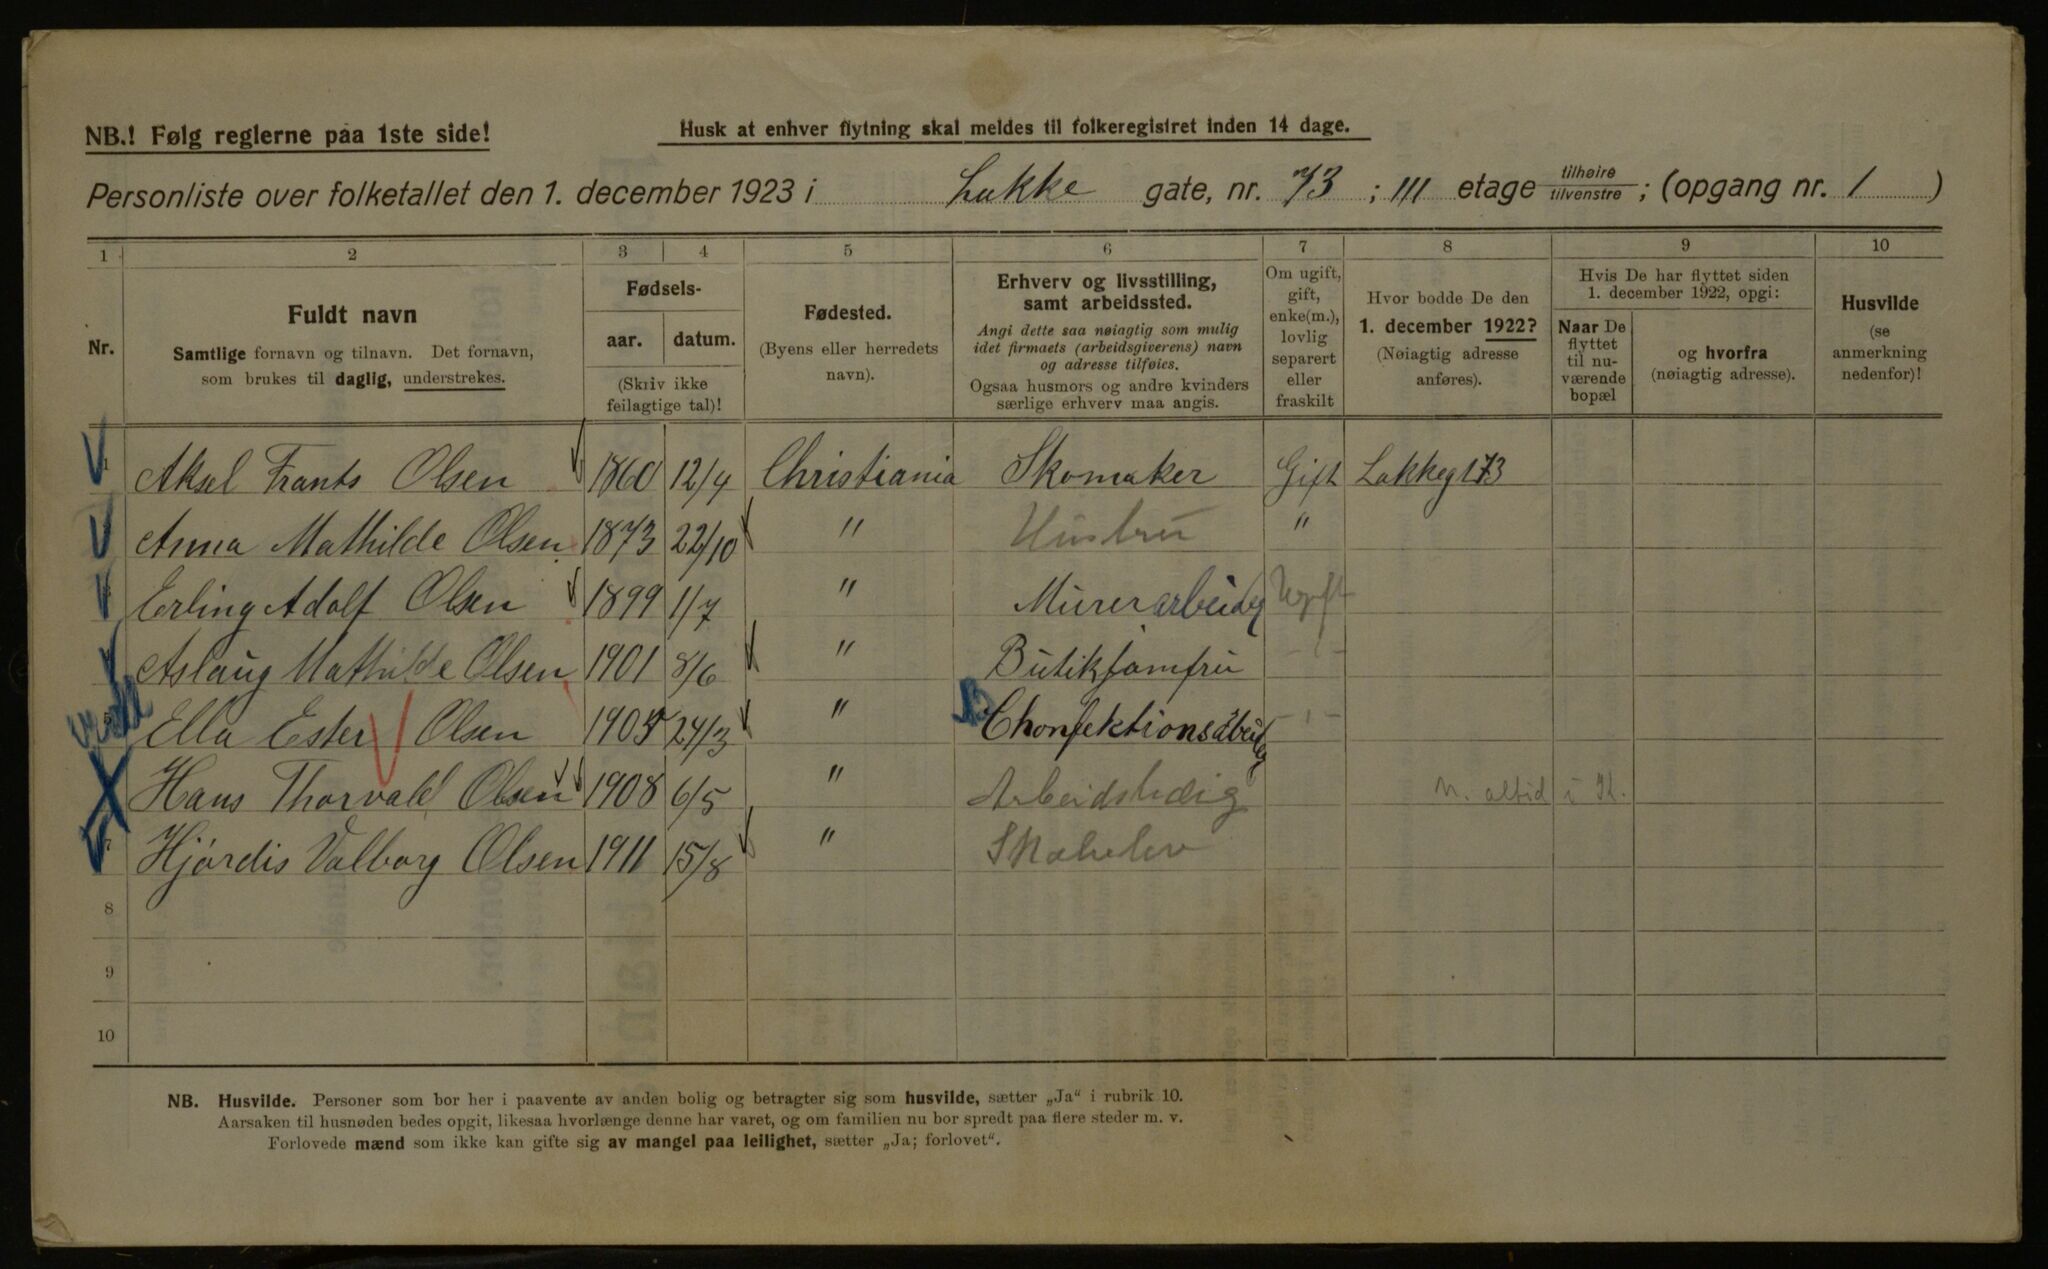 NB.! Følg reglerne paa 1ste side!
Husk at enhver flytning skal meldes til folkeregistret inden 14 dage.
Personliste over folketallet den 1. december 1923 i Lakke gate, nr. 73; III etage tilhøire tilvenstre; (opgang nr. 1)
1 2 3 4 5 6 7 8 9 10
Nr.
Fuldt navn
Samtlige fornavn og tilnavn. Det fornavn,
som brukes til daglig, understrekes.
Fødsels-
aar. datum.
(Skriv ikke
feilagtige tal)!
Fødested.
(Byens eller herredets
navn).
Erhverv og livsstilling,
samt arbeidssted.
Angi dette saa nøiagtig som mulig
idet firmaets (arbeidsgiverens) navn
og adresse tilføies.
Ogsaa husmors og andre kvinders
særlige erhverv maa angis.
Om ugift,
gift,
enke(m.),
lovlig
separert
eller
fraskilt
Hvor bodde De den
1. december 1922?
(Nøiagtig adresse
anføres).
Hvis De har flyttet siden
1. december 1922, opgi:
Naar De
flyttet
til nu-
værende
bopæl
og hvorfra
(nøiagtig adresse).
Husvilde
(se
anmerkning
nedenfor)!
1 Aksel Frants Olsen 1860 12/4 Christiania Skomaker Gift Lakkegt 73
Anna Mathilde Olsen 1873 22/10 " Hustru "
Erling Adolf Olsen 1899 1/7 " Murerarbeider Ugift
Aslaug Mathilde Olsen 1901 8/6 " Butikjomfru -"-
5 Ella Ester Olsen 24/3 " Chonfektionsarbeid -"-
Hans Thorvald Olsen 1908 6/5 " Arbeidsledig n. altid i K.
7 Hjørdis Valborg Olsen 1911 15/8 " Skoleelev
8
9
10
NB. Husvilde. Personer som bor her i paavente av anden bolig og betragter sig som husvilde, sætter „Ja“ i rubrik 10.
Aarsaken til husnøden bedes opgit, likesaa hvorlænge denne har varet, og om familien nu bor spredt paa flere steder m. v.
Forlovede mænd som ikke kan gifte sig av mangel paa leilighet, sætter „Ja; forlovet“.